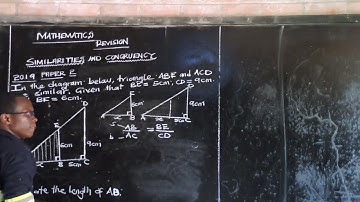 MATHEMATICS
REVISION
SIMILARITIES AND CONGRUENCY
2019 PAPER 2
In the diagram below, triangle ABE and ACD
is similar. Given that BE = 5cm, CD = 9cm
BE = 6cm.
D
E
6cm
9cm
x B 5cm C
E
6cm
A x B
D
9cm
A x 5cm C
AB = BE
AC CD
the length of AB.